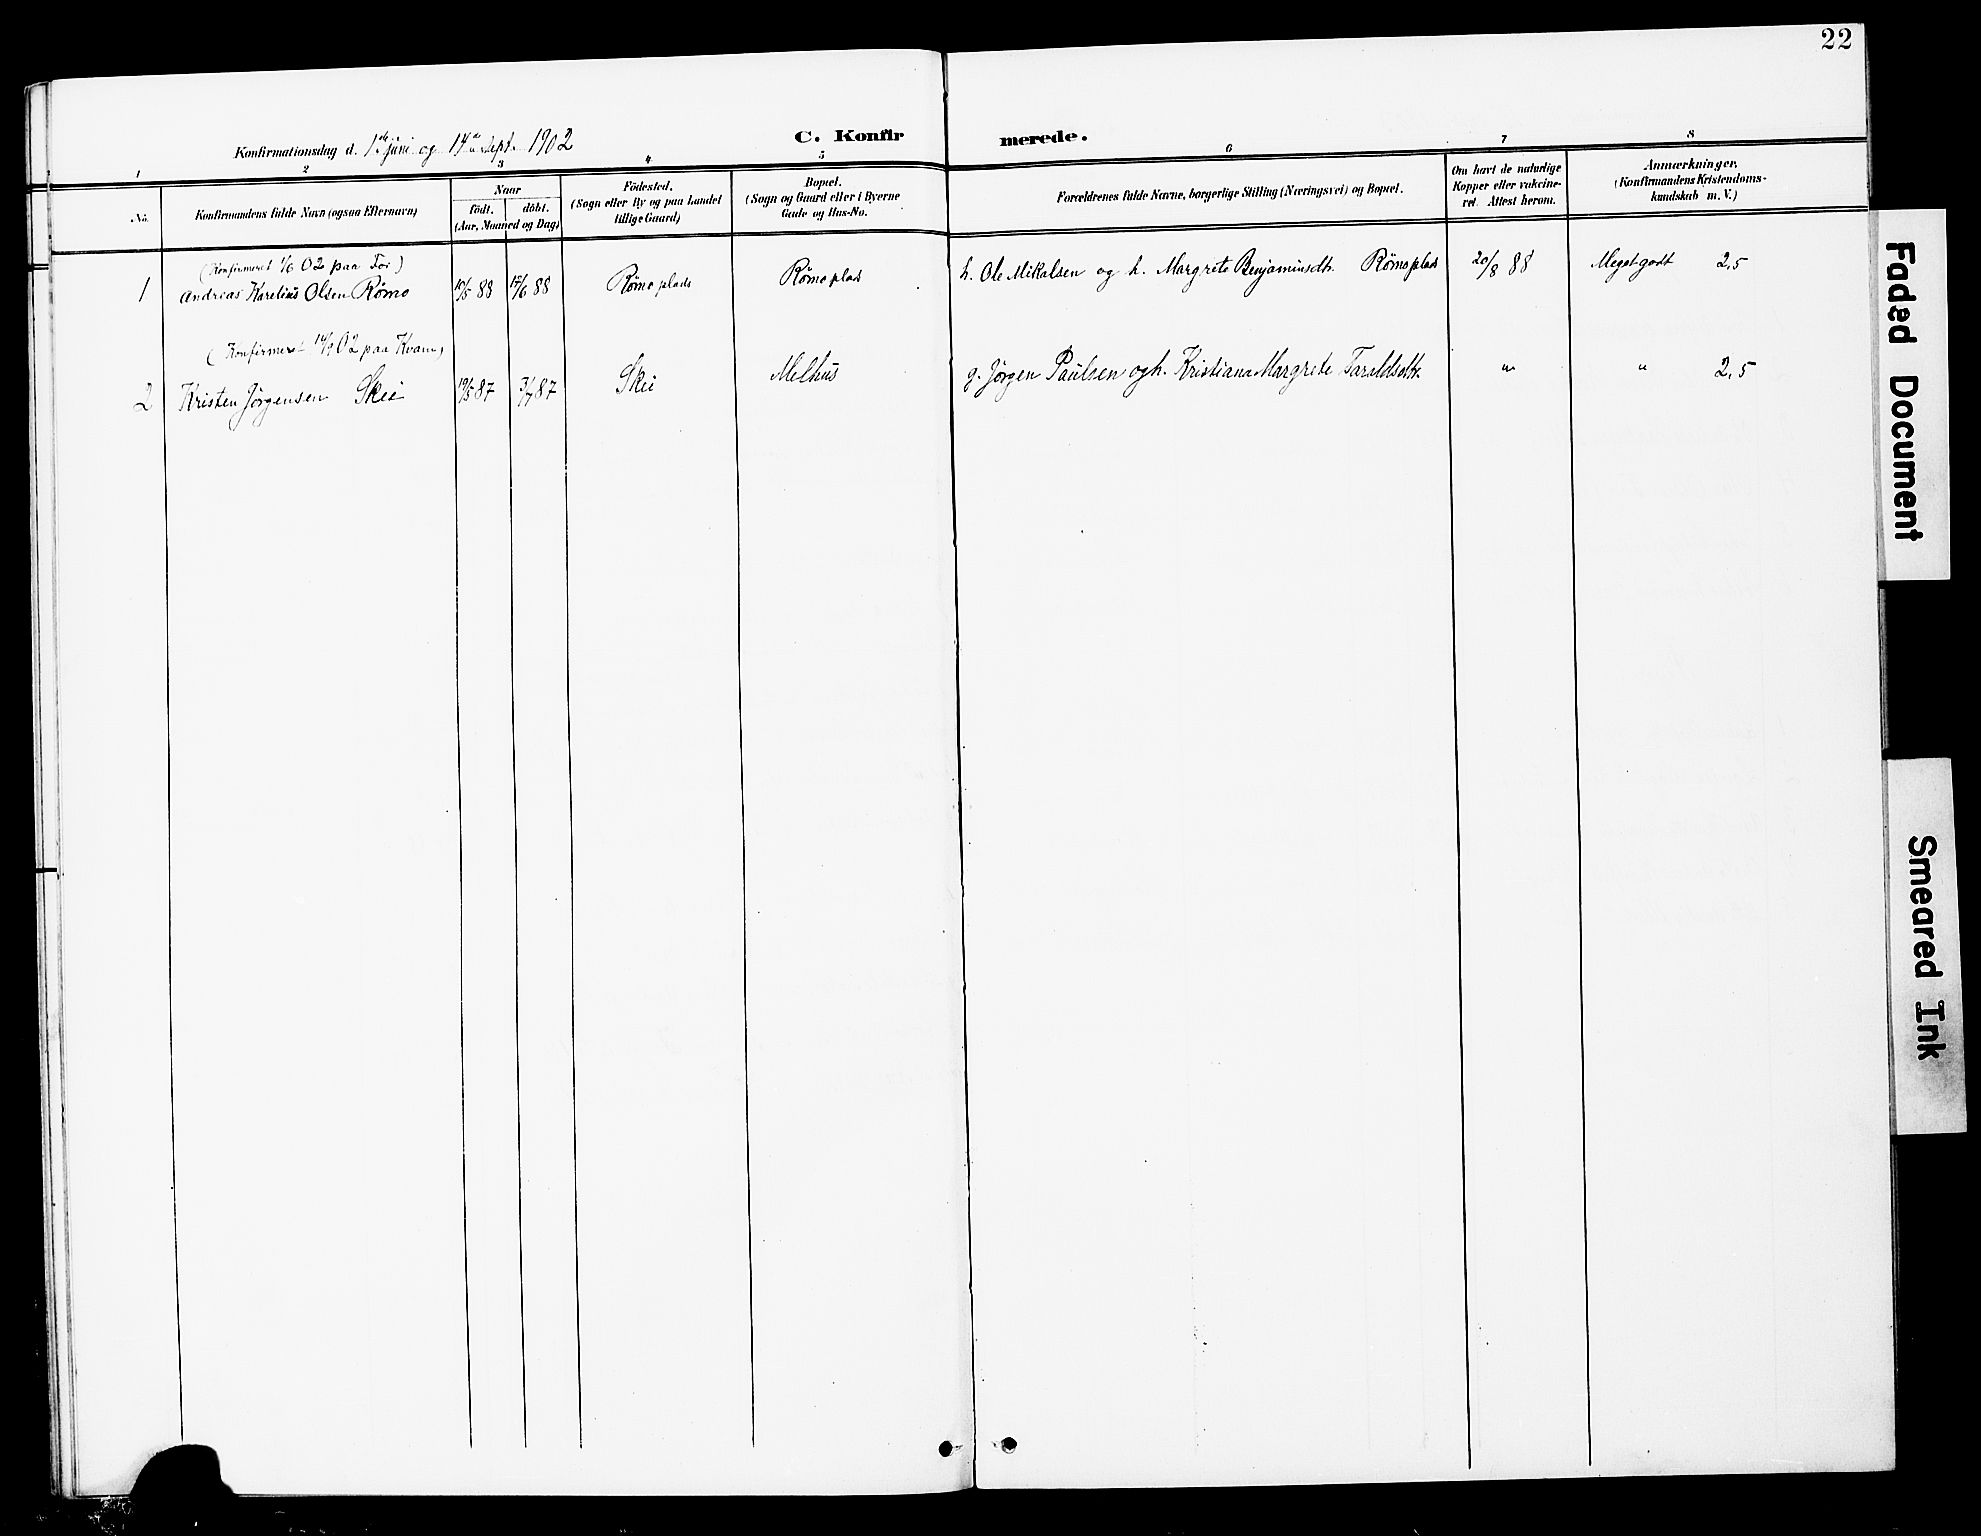 22
C. Konfir merede.
Konfirmationsdag d. 1ste juni og 14de sept. 1902
1 2 3 4 5 6 7 8
No.
Konfirmandens fulde Navn (ogsaa Efternavn)
Naar
født. døbt.
(Aar, Maaned og Dag)
Fødested.
(Sogn eller By og paa Landet
tillige Gaard)
Bopæl.
(Sogn og Gaard eller i Byerne
Gade og Hus-No.
Forældrenes fulde Navne, borgerlige Stilling (Næringsvei) og Bopæl.
Om havt de naturlige
Kopper eller vakcine-
ret. Attest herom.
Anmærkninger.
(Konfirmandens Kristendoms-
kundskab m. V.)
(Konfirmeret 1/6 02 paa For)
1 Andreas Karelius Olsen Rømo 10/5 88 17/6 88 Rømo plads Rømo plads h. Ole Mikalsen og h. Margrete Benjaminsdtr. Rømo plads 20/8 88 Meget godt 2,5
(Konfirmeret 14/9 02 paa Kvam)
2 Kristen Jørgensen Skei 19/5 87 3/7 87 Skei Melhus g. Jørgen Paulsen og h. Kristiana Margrete Taraldsdtr. " " 2,5
Faded Document
Smeared Ink